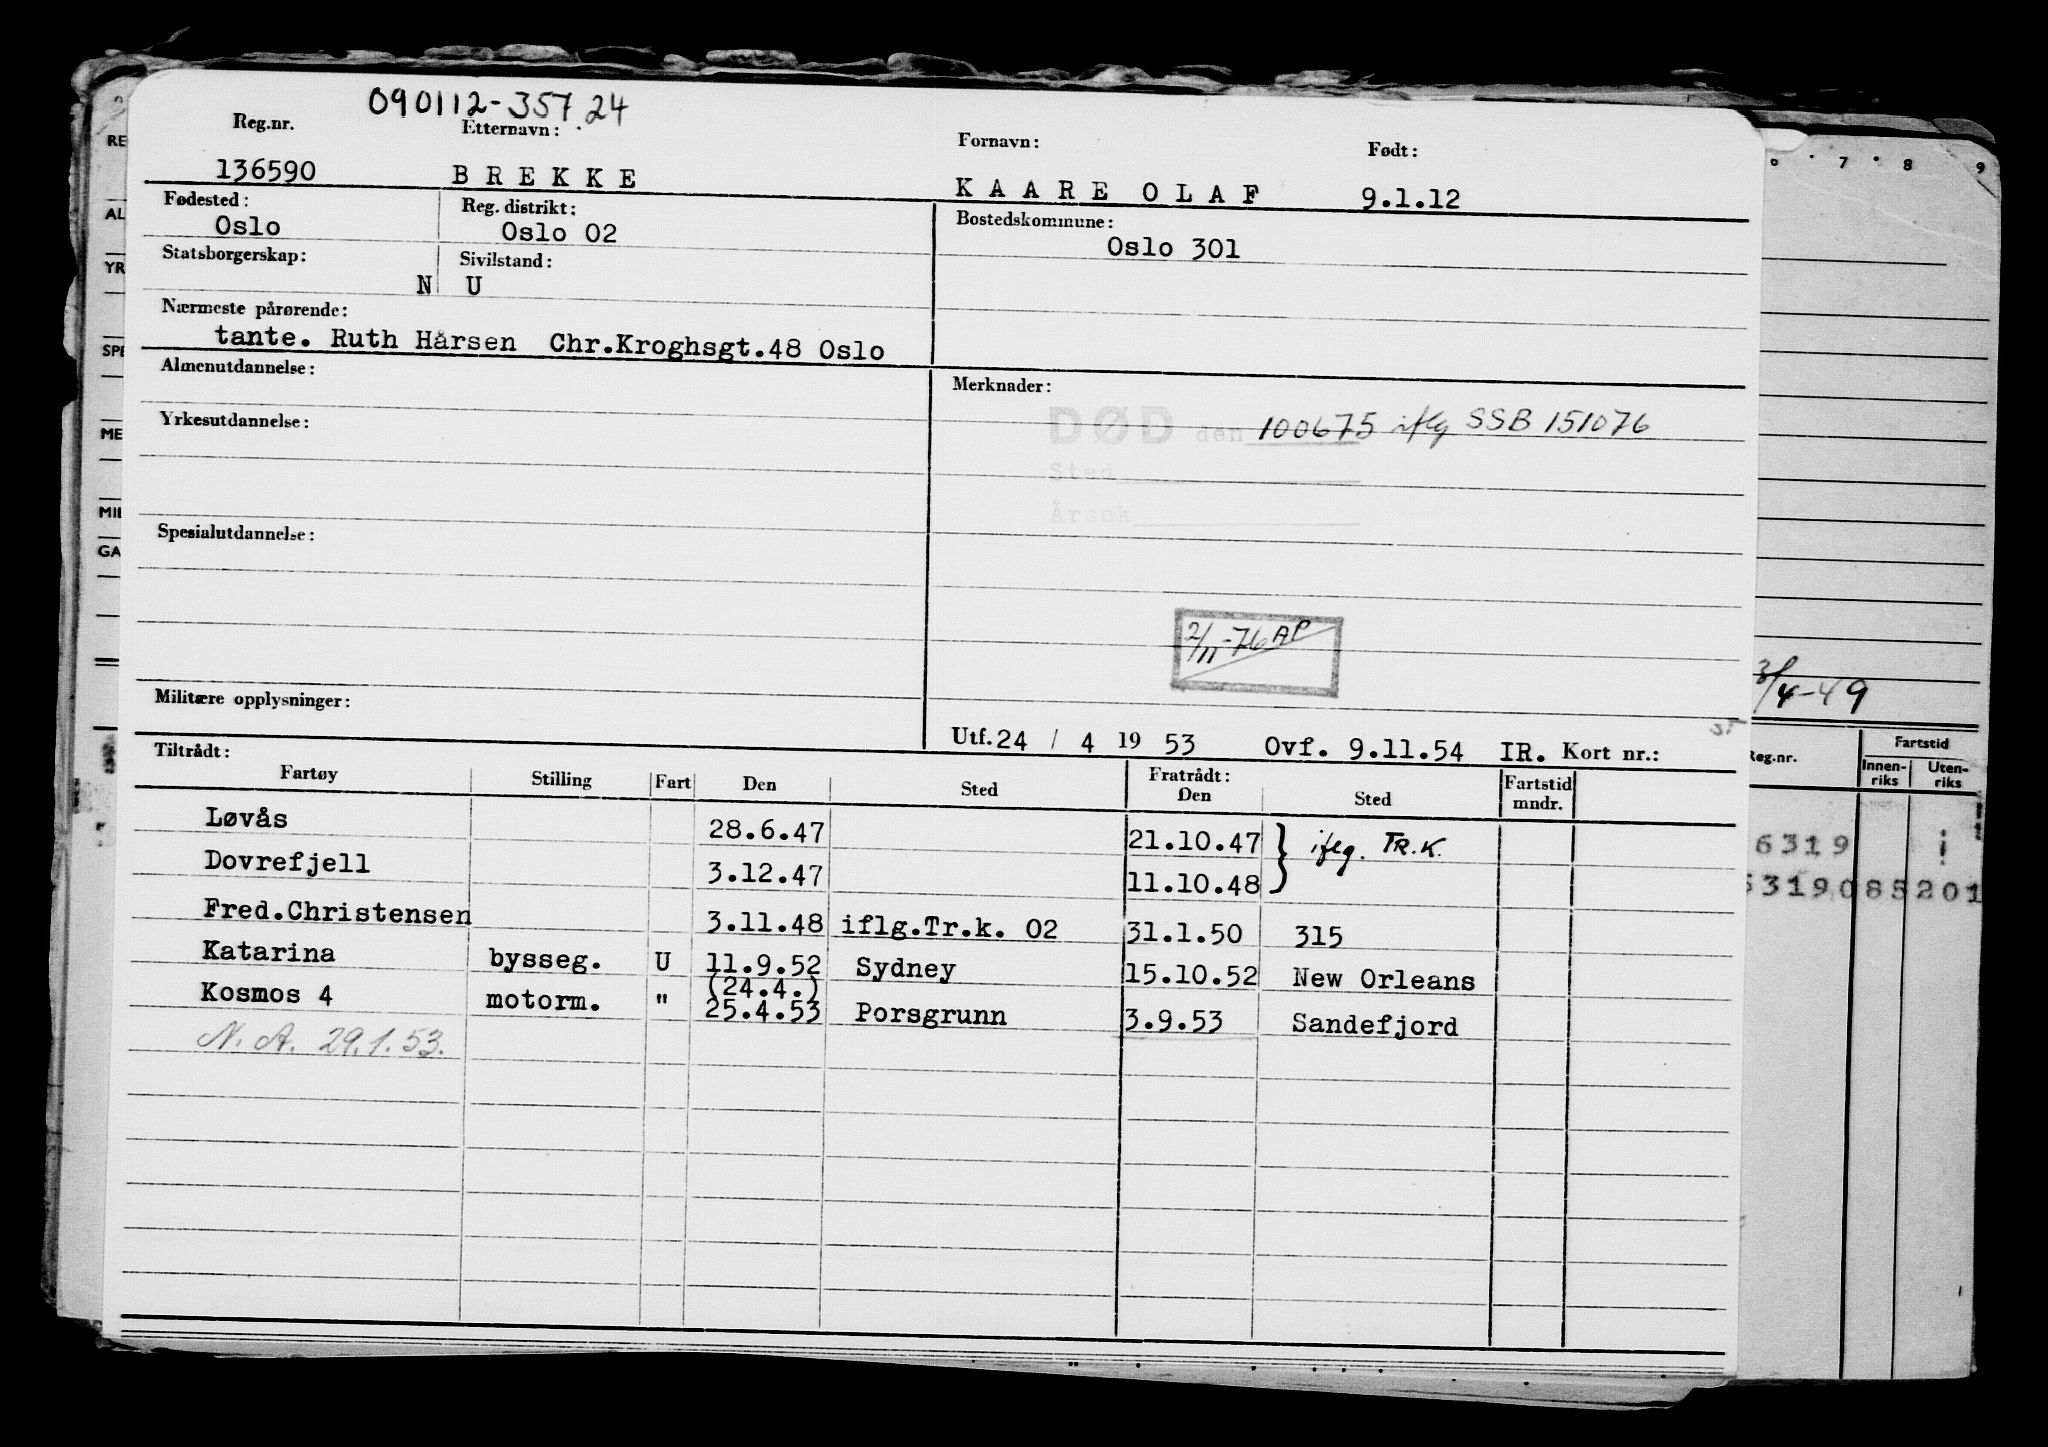 090112-35724
Reg.nr. Etternavn: Fornavn: Født:
136590 BREKKE KAARE OLAF 9.1.12
Fødested: Reg. distrikt: Bostedskommune:
Oslo Oslo 02 Oslo 301
Statsborgerskap: Sivilstand:
N U
Nærmeste pårørende:
tante. Ruth Hårsen Chr.Kroghsgt.48 Oslo
Almenutdannelse: Merknader:
DØD den 100675 iflg SSB 151076
Yrkesutdannelse:
Sted
Årsak
Spesialutdannelse:
2/11-76 AP
Militære opplysninger:
Utf. 24 / 4 19 53 Ovf. 9.11.54 IR. Kort nr.:
Tiltrådt: Fratrådt:
Fartøy Stilling Fart Den Sted Den Sted Fartstid mndr.
Løvås 28.6.47 21.10.47 } iflg. TR.K.
Dovrefjell 3.12.47 11.10.48
Fred.Christensen 3.11.48 iflg.Tr.k. 02 31.1.50 315
Katarina bysseg. U 11.9.52 Sydney 15.10.52 New Orleans
(24.4.)
Kosmos 4 motorm. " 25.4.53 Porsgrunn 3.9.53 Sandefjord
N.A. 29.1.53.
RE
AL
YR
SPE
ME
MIL
GA
7 8 9
/4-49
Reg.nr. Fartstid
Innen-riks Uten-riks
6319
319085201